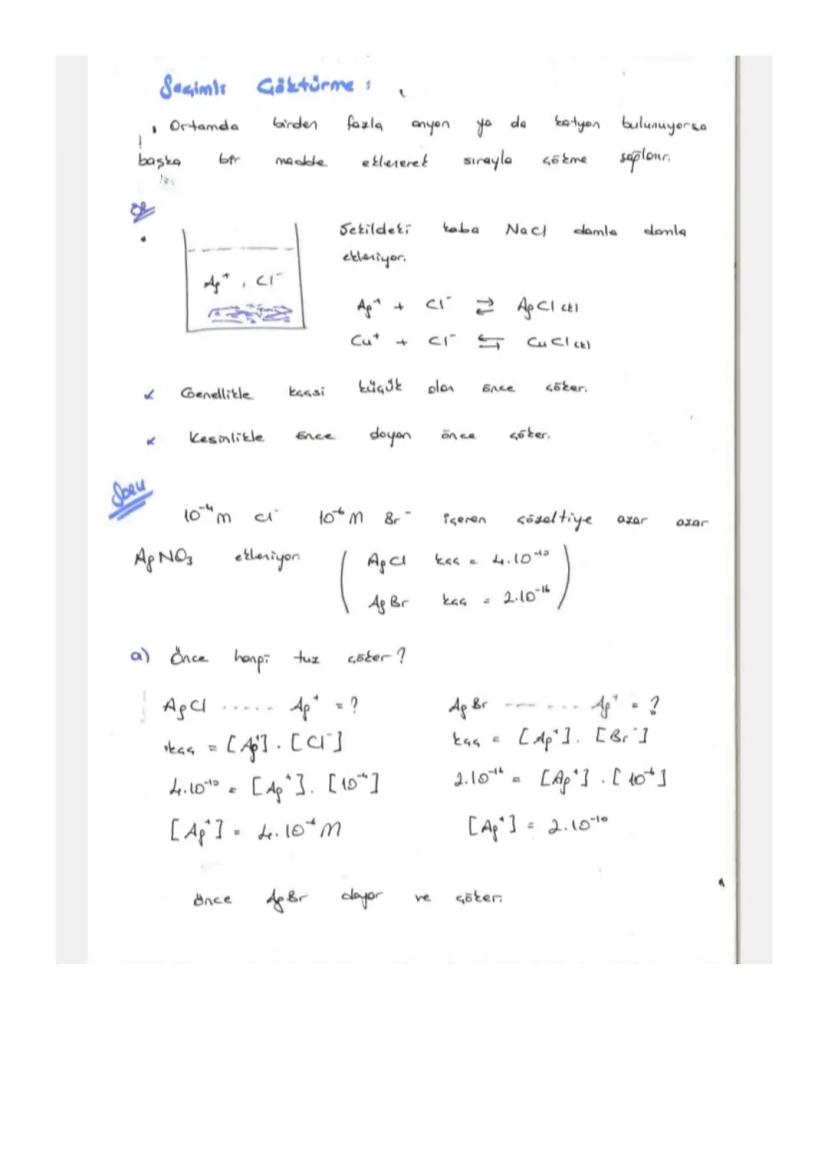 Seçimli Çöktürme :
Ortamda birden fazla anyon ya da katyon bulunuyorsa
başka bir madde eklenerek sırayla çökme sağlanır.
Ör
Şekildeki kaba NaCl damla damla
ekleniyor.
Ag⁺ , Cl⁻
Ag⁺ + Cl⁻ ⇄ AgCl (k)
Cu⁺ + Cl⁻ ⇆ CuCl (k)
Genellikle kççsi küçük olan önce çöker.
Kesinlikle önce doyan önce çöker.
Soru
10⁻⁴ M Cl⁻ 10⁻⁶ M Br⁻ içeren çözeltiye azar azar
AgNO₃ ekleniyor. ( AgCl kçç = 4.10⁻¹⁰
AgBr kçç = 2.10⁻¹⁶ )
a) Önce hangi tuz çöker?
AgCl ..... Ag⁺ = ?
kçç = [Ag⁺] . [Cl⁻]
4.10⁻¹⁰ = [Ag⁺]. [10⁻⁴]
[Ag⁺] = 4.10⁻⁶ M
AgBr ---- ... Ag⁺ = ?
kçç = [Ag⁺]. [Br⁻]
2.10⁻¹⁶ = [Ag⁺] . [10⁻⁶]
[Ag⁺] = 2.10⁻¹⁰
Önce AgBr doyar ve çöker.